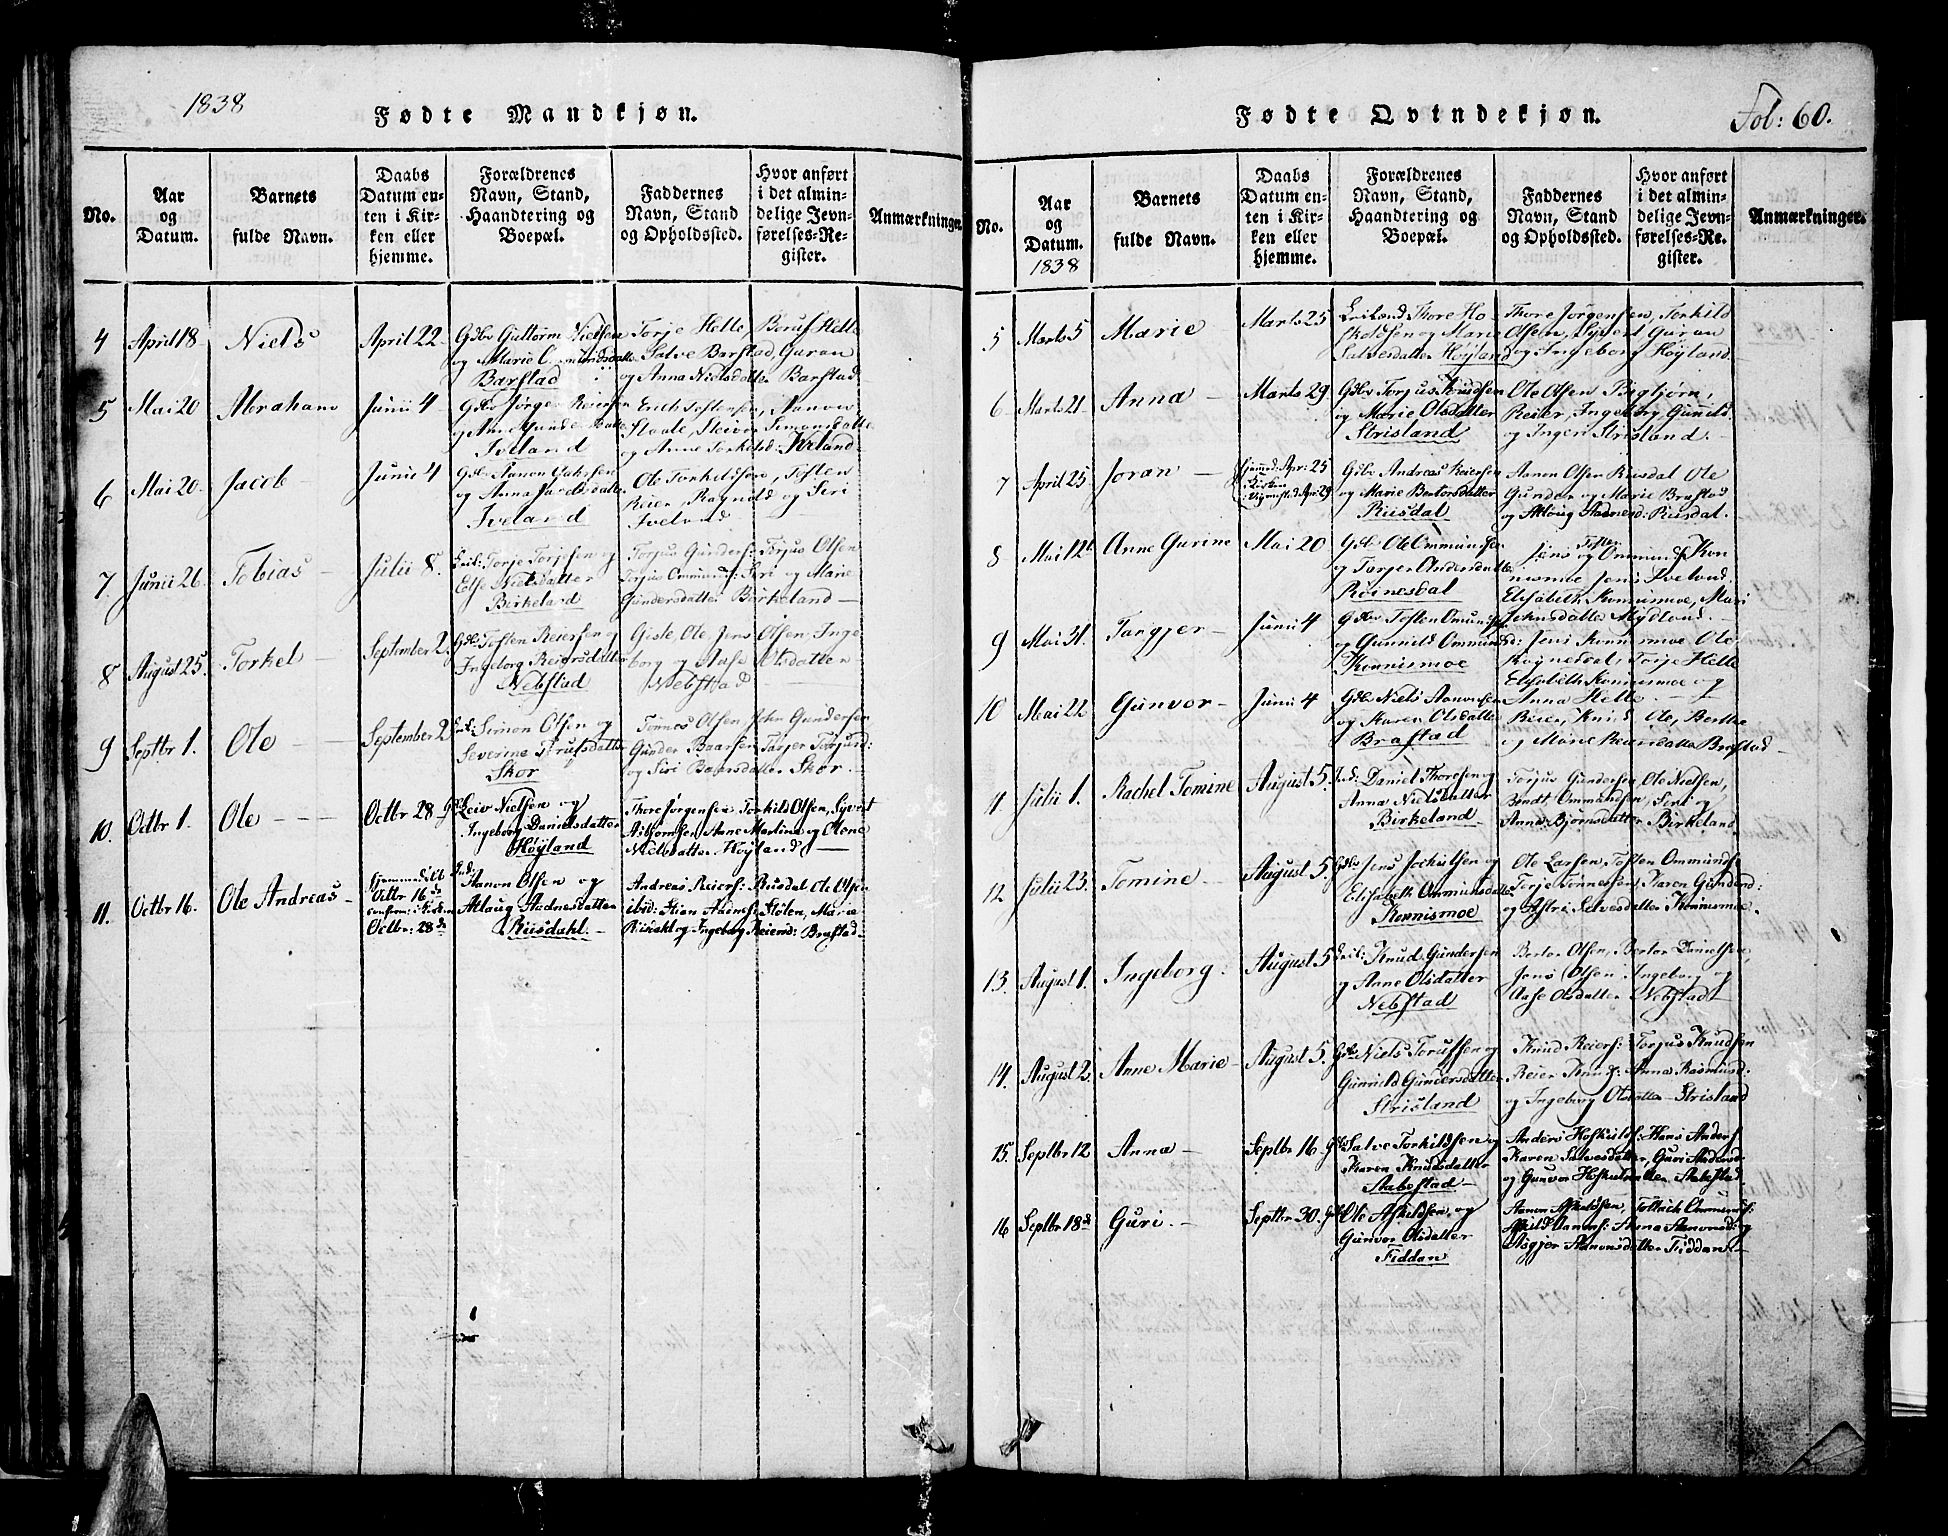 1838
Fødte Mandkjøn.
No.
Aar
og
Datum.
Barnets
fulde Navn.
Daabs
Datum en-
ten i Kir-
ken eller
hjemme.
Forældrenes
Navn, Stand,
Haandtering og
Boepæl.
Faddernes
Navn, Stand
og Opholdssted.
Hvor anført
i det almin-
delige Jevn-
førelses-Re-
gister.
Anmærkninger.
4 April 18 Niels April 22
Guttorm Nielsen
og Marie
Barstad
Torje Helle, Boruf Helle
Salve Barstad, Guran
og Anna Nielsdatter Barstad
5 Mai 20 Abraham Junii 4
Jørgen Reiersen
Iveland
og Anne Torkelsd: Iveland
6 Mai 20 Jacob Junii 4
Aanon
og Anna Jacobsdatter
Iveland
Ole Torkeldsen, Tosten
Reier, Ragnild og Siri
Iveland
7 Junii 26 Tobias Julii 8.
Torje Torjesen og
Else Nielsdatter
Birkeland
Torjus Gunders: Torjus Olsen
Torjus Ommunds: Siri og Marie
Gundersdatter Birkeland
8 August 25 Torkel September 2
Tosten Reiersen og
Ingeborg Reiersdatter
Nebstad
Ole, Jens Olsen, Inge
borg og Aase Olsdatter
Nebstad
9 Septbr 1. Ole September 2
Simon Olsen og
Severine
Skor
Tønnes Olsen, John Gundersen
Gunder Baarsen Torjer
og Siri Baarsdatter Skor
10. Octbr 1. Ole Octbr 28
Leiv Nielsen og
Ingeborg Danielsdatter
Høyland
Thore Jørgensen Torkild Olsen, Syvert
Asbjørnsen Anne Martine og Olene
Nielsdatter Høyland
11. Octbr 16. Ole Andreas
Octbr 16
Octbr: 28
Aanon Olsen og
Atlaug Aadnesdatter
Risdahl
Andreas Reiers: Rusdal Ole Olsen
ibid: Stian Aadnes: Stølen, Marie
og Ingeborg Reiersd: Brastad
Fødte Qvindekjøn.
Fol: 60.
No.
Aar
og
Datum.
1838
Barnets
fulde Navn.
Daabs
Datum en-
ten i Kir-
ken eller
hjemme.
Forældrenes
Navn, Stand,
Haandtering og
Boepæl.
Faddernes
Navn, Stand
og Opholdssted.
Hvor anført
i det almin-
delige Jevn-
førelses-Re-
gister.
Anmærkninger.
5 Marts 5 Marie Marts 25
Thore Ho-
skoldsen og Marie
Salvesdatter Høyland
Thore Jørgensen, Torkild
Olsen, Syvert Guran
og Ingeborg Høyland
6 Marts 21 Anna Marts 29
Torjus Knudsen
og Marie Olsdatter
Strisland
Ole Olsen Bigbjørn,
Reier, Ingeborg Gunild
og Inger Strisland.
7 April 25 Joran
Apr: 25
Apr: 29
Andreas Reiersen
og Marie Bertorsdatter
Rusdal
Aanon Olsen Rusdal Ole
Gunder og Marie Brastad
og Atloug Aadnesd: Rusdal.
8 Mai 12 Anne Gurine Mai 20
Ole Ommundsen
og Torjer
Roinesdal
Jens og Tosten Ommunds: Kon
nismoe Jens Iveland
Elisabeth Konnismoe, Mari
Jehansdatter Mydland.
9 Mai 31. Targjer Junii 4
Tosten Omunds:
og Gunnild Ommunds:
Konnismoe
Jens Konnismoe Ole
Torje Helle
Elisabeth Konnismoe og
Anna Helle
10 Mai 22 Gunvor Junii 4
Niels Aanonsen
og Karen Olsdatter
Brastad
Reier, Knud Ole, Berthe
og Marie Reiersdatter Brastad
11 Julii 1. Rachel Tomine August 5.
Daniel Thoresen og
Anna Nielsdatter
Birkeland
Torjus Gundersen Ole Nielsen,
Berndt Ommundsen, Siri og
Anna Bjørnsdatter Birkeland
12 Julii 23. Tomine August 5.
Jens Jockulsen og
Elisabeth Ommundsdatter
Konnismoe
Ole Larsen Tosten Ommunds:
Torje Tønnesen Karen Gundersd:
og Astri Salvesdatter Konnismoe.
13. August 1. Ingeborg. August 5
Knud Gundersen
og Anne Olsdatter
Nebstad
Bertor Olsen, Bertor Danielsen,
Jens Olsen Ingeborg og
Aase Olsdatter Nebstad
14. August 2. Anne Marie August 5.
Niels Torufsen og
Gunnild Gundersdatter
Strisland
Knud Reiers: Torjus Knudsen
Reier Knuds: Anna Rasmusd:
og Ingeborg Olsdatter Strisland
15. Septbr 12 Anna Septbr 16.
Salve Torkildsen og
Karen Knudsdatter
Stabestad
Anders Hoskulds: Hans Anders:
Karen Salvesdatter, Guri Andersd:
og Gunvor Hoskulsdatter Stabestad
16 Septbr 18 Guri. Septbr 30.
Ole Askildsen og
Gunvor Olsdatter
Fiddan
Aanon Askildsen, Tollach Ommunds:
Askild Aanons: Anna Aanonsd: og
Aasgjer Aanonsdatter Fiddan